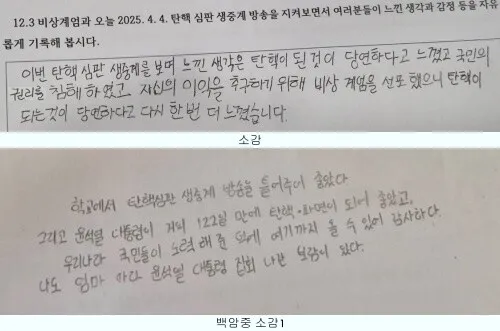 12.3 비상계엄과 오늘 2025. 4. 4. 탄핵 심판 생중계 방송을 지켜보면서 여러분들이 느낀 생각과 감정 등을 자유
롭게 기록해 봅시다.
이번 탄핵심판 생중계를 보며 느낀 생각은 탄핵이 된 것이 당연하다고 느꼈고 국민의
권리를 침해 하였고 자신의 이익을 추구하기 위해 비상 계엄을 선포했으니 탄핵이
되는것이 당연하다고 다시 한번 더 느꼈습니다.
소감
학교에서 탄핵심판 생중계 방송을 틀어주어 좋았다
그리고 윤석열 대통령이 거의 122일 만에 탄핵·파면이 되어 좋았고,
우리나라 국민들이 노력해 준 덕에 여기까지 올 수 있어 감사하다.
나도 엄마 따라 윤석열 대통령 집회 나간 보람이 있다.
백암중 소감1